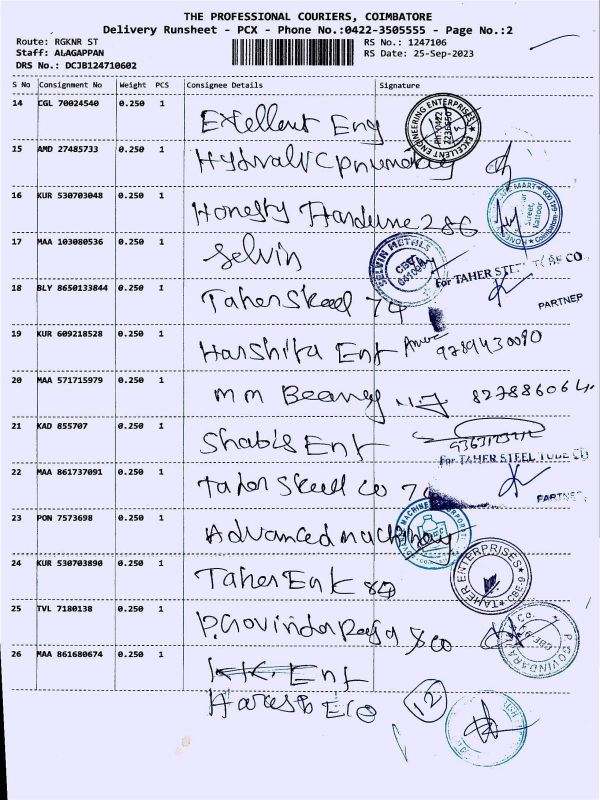 THE PROFESSIONAL COURIERS, COIMBATORE
Delivery Runsheet - PCX - Phone No.:0422-3505555 - Page No.:2
Route: RGKNR ST
RS No.: 1247106
Staff: ALAGAPPAN
RS Date: 25-Sep-2023
DRS No.: DCJB124710602
S No Consignment No Weight PCS Consignee Details Signature
14 CGL 70024540 0.250 1 Exellent Eng
EXCELLENT ENGINEERING ENTERPRISES
15 AMD 27485733 0.250 1
16 KUR 530703048 0.250 1 Honesty 286
17 MAA 103080536 0.250 1 Selvin
SELVIN METALS
For TAHER STEEL TUBE CO
PARTNER
18 BLY 8650133844 0.250 1 Taher Steel 74
19 KUR 609218528 0.250 1 Harshita Ent 9789430090
20 MAA 571715979 0.250 1 mm
21 KAD 855707 0.250 1 Ent
For TAHER STEEL TUBE CO
PARTNER
22 MAA 861737091 0.250 1 Taher Steel co
23 PON 7573698 0.250 1 Advanced machinery
24 KUR 530703890 0.250 1 Taher Ent
TAHER ENTERPRISES CBE-9
25 TVL 7180138 0.250 1 P. Govindaraja & co
P. GOVINDARAJ
26 MAA 861680674 0.250 1 K.K. Ent
12